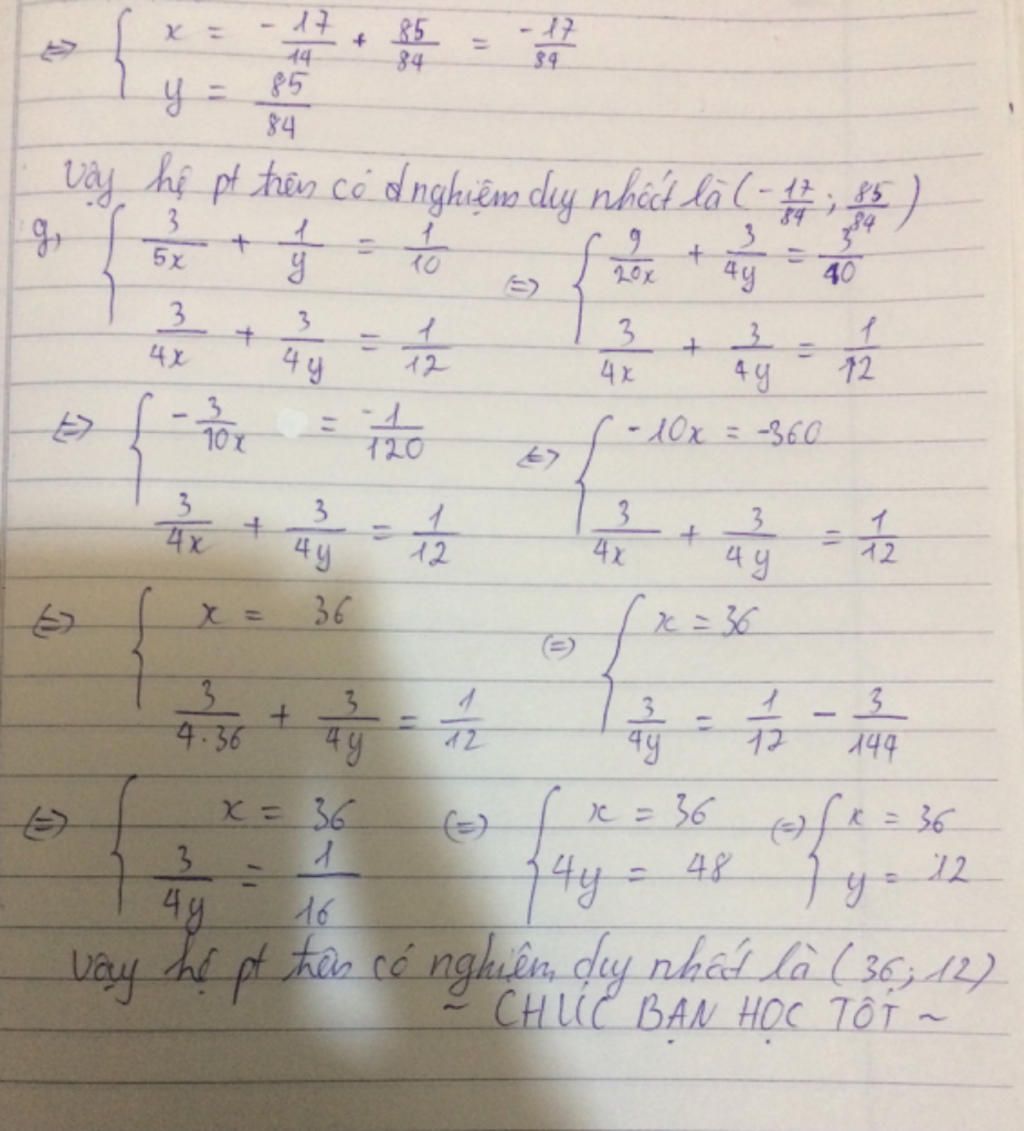 <=> { x = -17/14 + 85/84 = -17/84
y = 85/84
Vậy hệ pt trên có nghiệm duy nhất là (-17/84; 85/84)
g, { 3/5x + 1/y = 1/10 <=> { 9/20x + 3/4y = 3/40
3/4x + 3/4y = 1/12 3/4x + 3/4y = 1/12
<=> { -3/10x = -1/120 <=> { -10x = -360
3/4x + 3/4y = 1/12 3/4x + 3/4y = 1/12
<=> { x = 36 (=) { x = 36
3/4.36 + 3/4y = 1/12 3/4y = 1/12 - 3/144
(=) { x = 36 (=) { x = 36 (=) { x = 36
3/4y = 1/16 4y = 48 y = 12
Vậy hệ pt trên có nghiệm duy nhất là (36; 12)
~ CHÚC BẠN HỌC TỐT ~